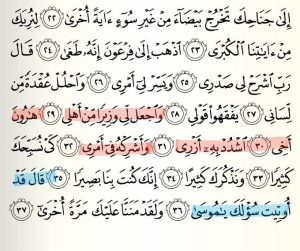 إِلَىٰ جَنَاحِكَ تَخْرُجْ بَيْضَآءَ مِنْ غَيْرِ سُوٓءٍ ءَايَةً أُخْرَىٰ ٢٢ لِنُرِيَكَ
مِنْ ءَايَٰتِنَا ٱلْكُبْرَى ٢٣ ٱذْهَبْ إِلَىٰ فِرْعَوْنَ إِنَّهُۥ طَغَىٰ ٢٤ قَالَ
رَبِّ ٱشْرَحْ لِى صَدْرِى ٢٥ وَيَسِّرْ لِىٓ أَمْرِى ٢٦ وَٱحْلُلْ عُقْدَةً مِّن
لِّسَانِى ٢٧ يَفْقَهُوا۟ قَوْلِى ٢٨ وَٱجْعَل لِّى وَزِيرًا مِّنْ أَهْلِى ٢٩ هَٰرُونَ
أَخِى ٣٠ ٱشْدُدْ بِهِۦٓ أَزْرِى ٣١ وَأَشْرِكْهُ فِىٓ أَمْرِى ٣٢ كَىْ نُسَبِّحَكَ
كَثِيرًا ٣٣ وَنَذْكُرَكَ كَثِيرًا ٣٤ إِنَّكَ كُنتَ بِنَا بَصِيرًا ٣٥ قَالَ قَدْ
أُوتِيتَ سُؤْلَكَ يَٰمُوسَىٰ ٣٦ وَلَقَدْ مَنَنَّا عَلَيْكَ مَرَّةً أُخْرَىٰٓ ٣٧